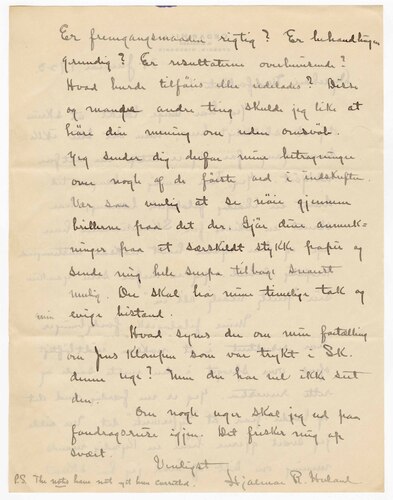 Er fremgangsmaaden rigtig? Er behandlingen
grundig? Er resultaterne overbevisende?
Hvad burde tilføies eller udelades? Disse
og mange andre ting skulde jeg like at
høre din mening om uden omsvøb.
Jeg sender dig derfor mine betragtninger
over nogle af de første ord i indskriften.
Vær saa venlig at se nøie gjennem
brillerne paa det der. Gjør dine anmærk-
ninger paa et særskildt stykke papir og
sende mig hele suppa tilbage snarest
mulig. Du skal ha min timelige tak og
min evige bistand.
Hvad synes du om min fortælling
om Jens Klompen som var trykt i Sk.
denne uge? Men du har vel ikke set
den.
Om nogle uger skal jeg ud paa
foredragsreise igjen. Det frisker mig op
svært.
Venligst
Hjalmar R. Holand
P.S. The notes have not yet been corrected.